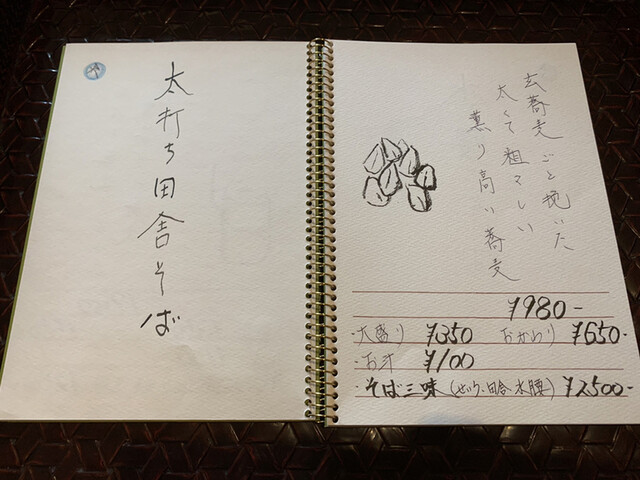 太打ち田舎そば
玄蕎麦ごと挽いた
太くて粗々しい
薫り高い蕎麦
¥980-
・大盛り ¥350 おかわり ¥650-
・お汁 ¥100
・そば三味(せいろ・田舎・水腰) ¥2500-